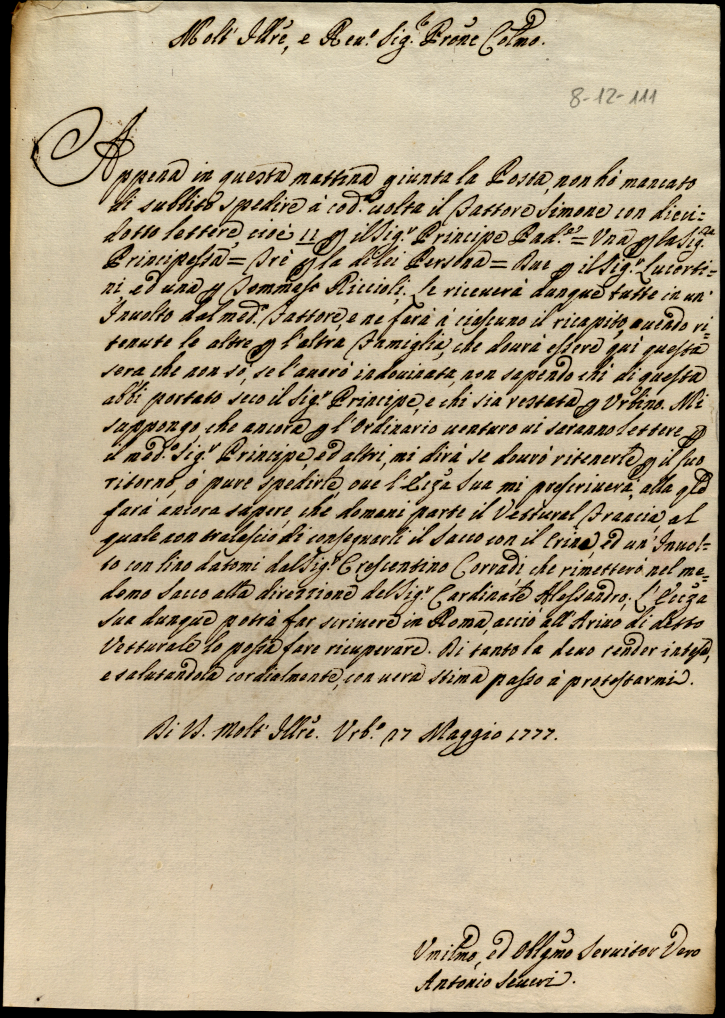 Molt' Illre, e Revo. Sigr. Prone Colmo.
8-12-111
Appena in questa mattina giunta la Posta, non hò mancato
di subbito spedire à codta. uolta il Fattore Simone con dieci-
dotto lettere cioè 11 p il Sigr. Principe = Una p la Sigra.
Principessa = Trè p la di lei Persona = Due p il Sigr. Lucorti-
ni ed una p Tommaso Riccioli, Le riceuerà dunque tutte in un'
Inuolto dal medo. Fattore, e ne farà à ciascuno il ricapito, auendo ri-
tenute le altre p l'altra Famiglia, che dourà essere quì questa
sera che non sò, se l'auerò indouinata, non sapendo chi di questa
abbi portato seco il Sigr. Principe, e chi sia restata p Urbino. Mi
suppongo che ancora p l'Ordinario uenturo ui saranno lettere p
il medo. Sigr. Principe, ed altri, mi dirà se dourò ritenerle p il suo
ritorno, ò pure spedirle, oue l'Ecza Sua mi prescriuerà, alla qle
farà ancora sapere, che domani parte il Vettural Francia, al
quale non tralascio di consegnarli il Sacco con il Crine, ed un' Inuol-
to con lino datomi dal Sigr. Crescentino Corradi che rimetterò nel me-
demo Sacco alla direzzione del Sigr. Cardinale Alessandro; L'Ecza
sua dunque potrà far scriuere in Roma, acciò all'Ariuo di detto
Vetturale lo possa fare ricuperare. Di tanto la deuo render intesa,
e salutandola cordialmente, con uera stima passo à protestarmi.
Di V. Molt' Illre. Urbo. 27 Maggio 1777.
Umilmo, ed Obligmo Seruitor Vero
Antonio Seueri.